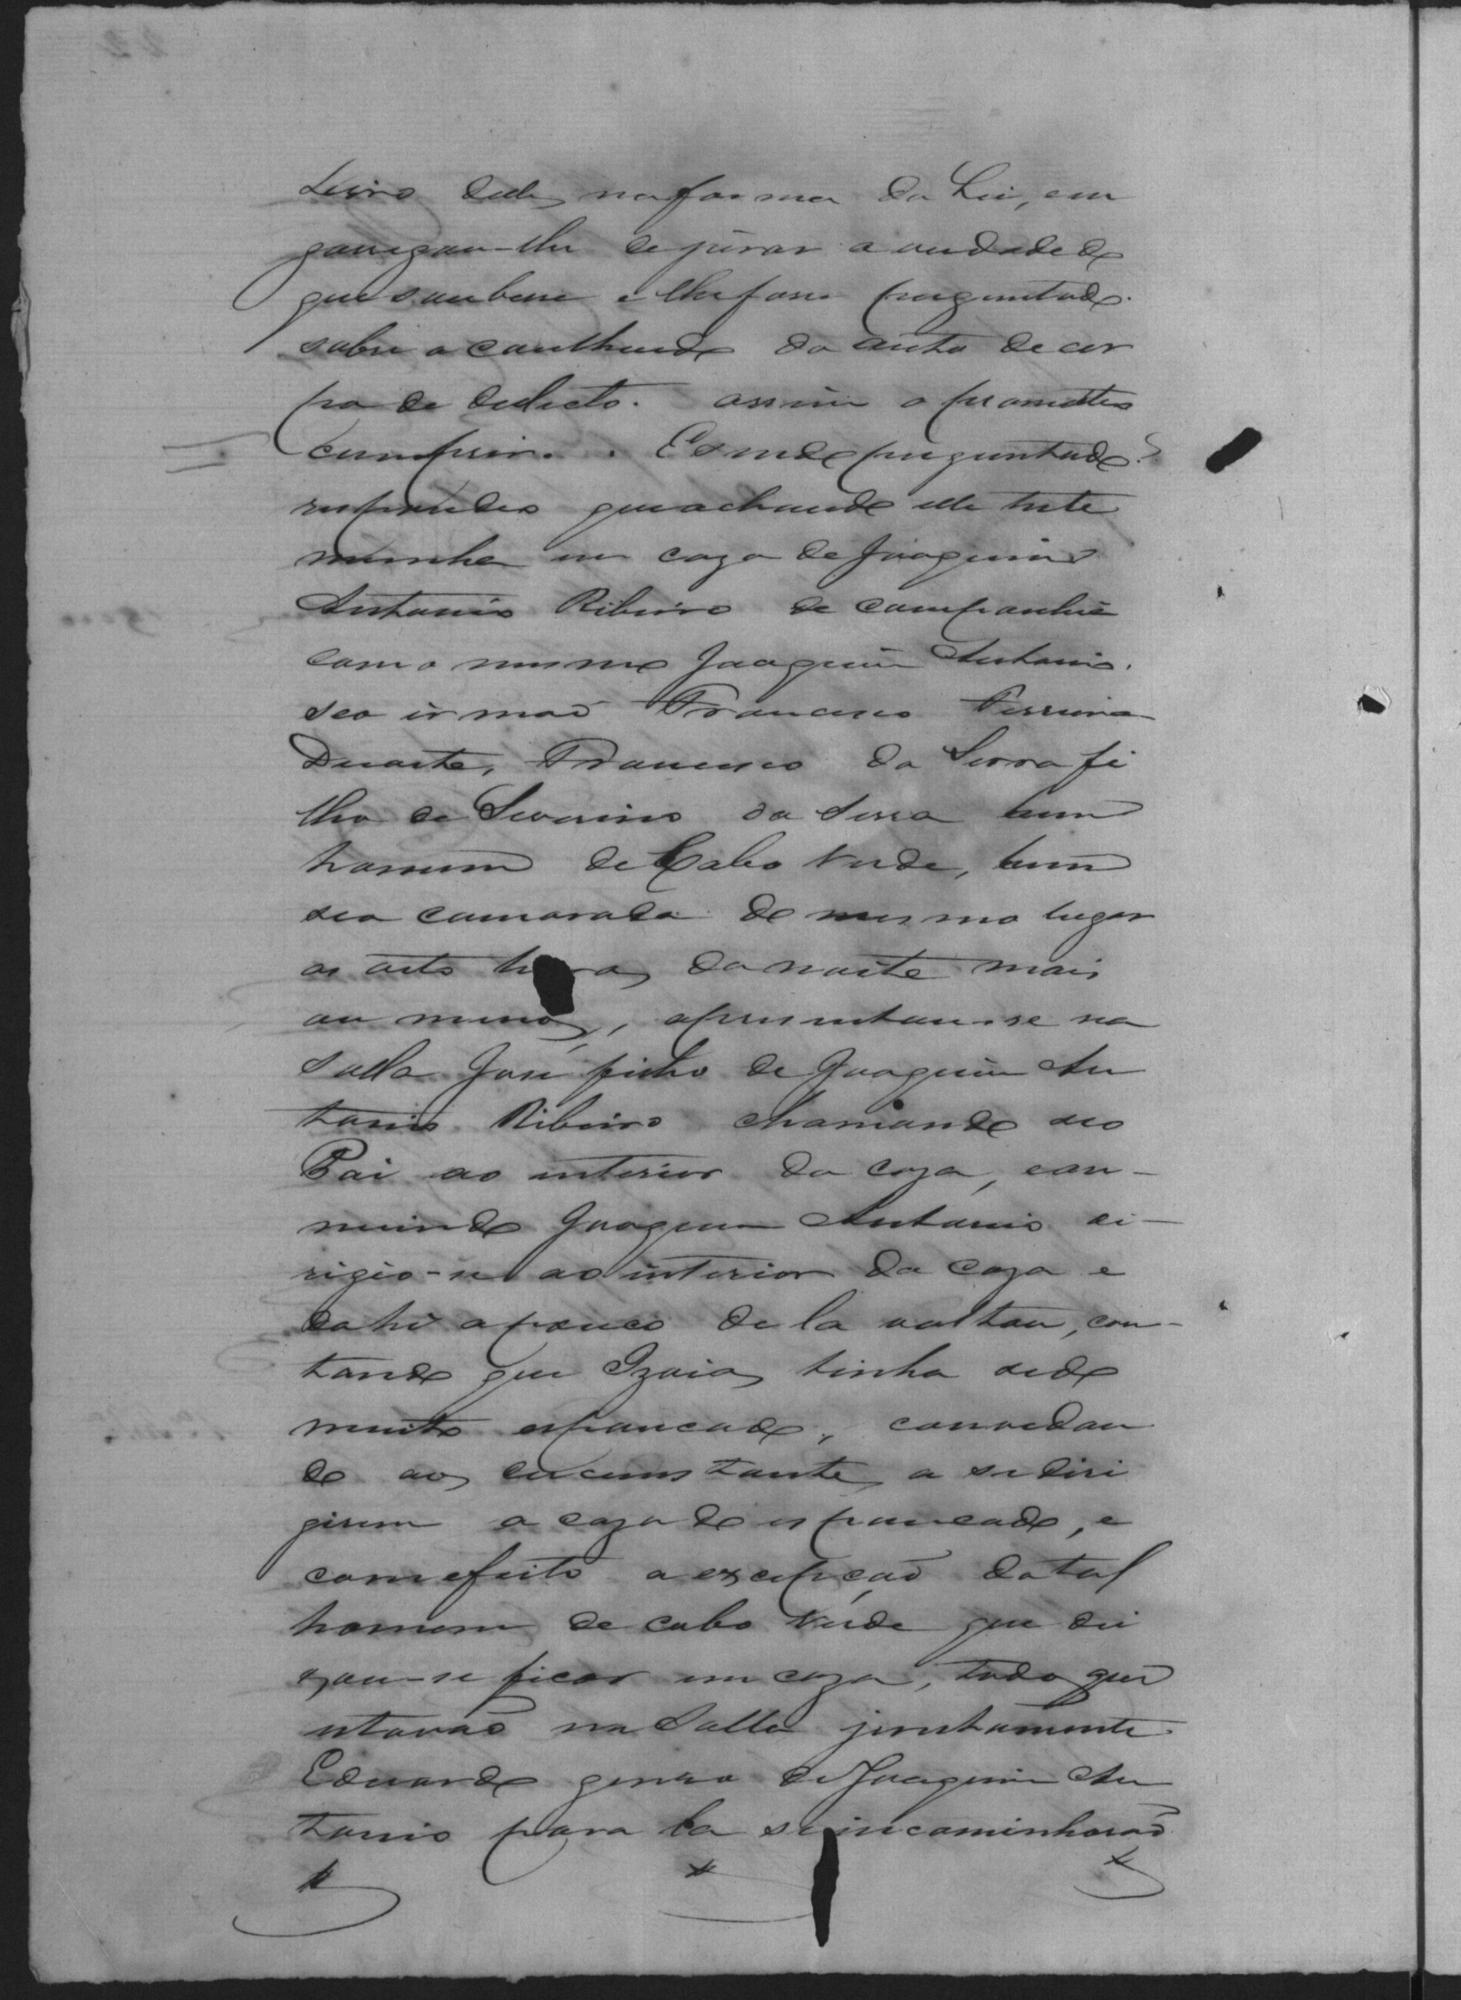 teiro delle na forma da Lei, em
garregou-lhe de jurar a verdade do
que soubece e lhe fosse preguntado
sobre o contheudo do auto de cor
po de delicto. assim o prometteo
cumprir. E sendo preguntado?
respondeo que achando elle teste
munha em caza de Joaquim
Antonio Ribeiro de companhia
com o mesmo Joaquim Antonio.
seo irmaõ Francisco Ferreira
Duarte, Francisco da Serra fi
lho de Severino da Serra hum
homem de Cabo Verde, hum
seo camarada do mesmo lugar
as oito horas da noite mais
ou menos, apresentou-se na
Salla José filho de Joaquim An
tonio Ribeiro chamando seo
Pai ao interior da caza, con-
movido Joaquim Antonio di-
rigio-se ao interior da caza e
dahi apouco de la voltou, con-
tando que Izaias tinha sido
muito espancado, convidan
do aos circumstantes a se diri
girem a caza do espancado, e
com efeito a excepçaõ do tal
homem de cabo Verde que dei
xou-se ficar em caza, todos que
estavaõ na Salla juntamente
Eduardo genro de Joaquim An
tonio para la se incaminharaõ